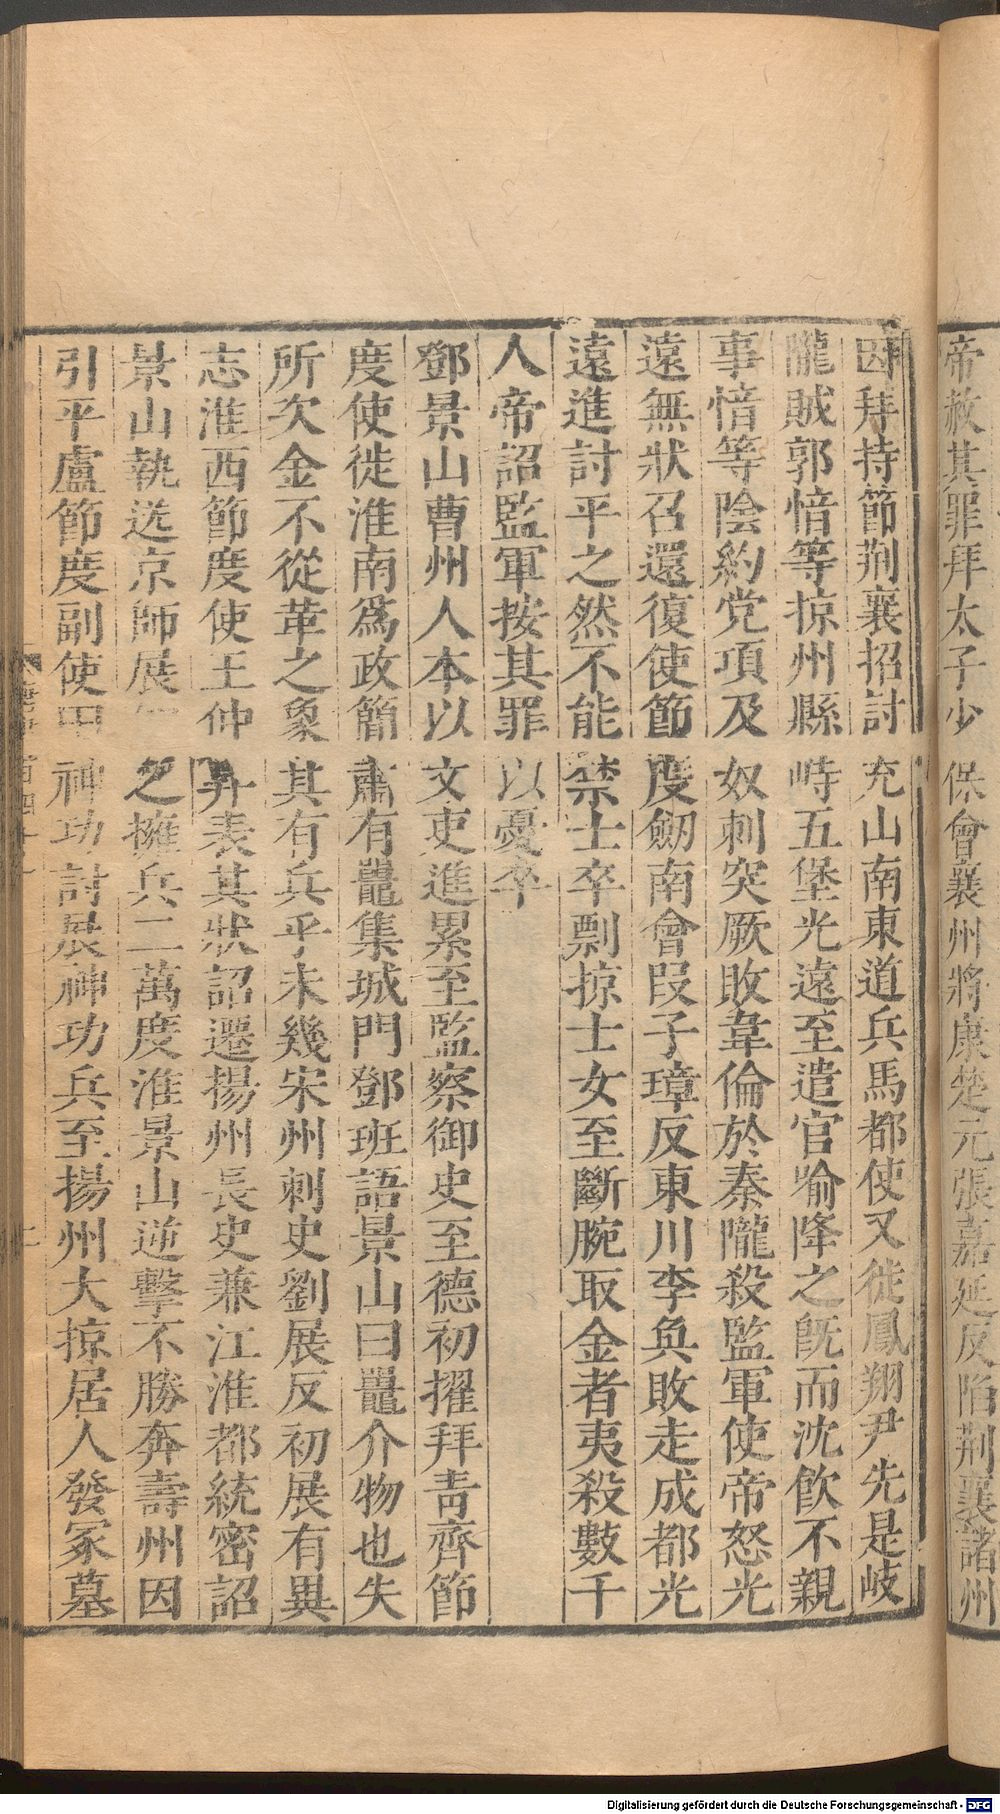 帝赦其罪拜太子少保會襄州將康楚元張嘉延反陷荆襄諸州
因拜持節荆襄招討充山南東道兵馬都使又徙鳳翔尹先是岐
隴賊郭愔等掠州縣峙五堡光遠至遣官喻降之旣而沈飲不親
事愔等陰約党項及奴刺突厥敗韋倫於秦隴殺監軍使帝怒光
遠無狀召還復使節度劒南會段子璋反東川李奐敗走成都光
遠進討平之然不能禁士卒剽掠士女至斷腕取金者夷殺數千
人帝詔監軍按其罪以憂卒
鄧景山曹州人本以文吏進累至監察御史至德初擢拜靑齊節
度使徙淮南爲政簡肅有鼉集城門鄧班語景山曰鼉介物也失
所次金不從革之象其有兵乎未幾宋州刺史劉展反初展有異
志淮西節度使王仲昇表其狀詔遷揚州長史兼江淮都統密詔
景山執送京師展之擁兵二萬度淮景山逆擊不勝奔壽州因
引平盧節度副使田神功討展神功兵至揚州大掠居人發冢墓
Digitalisierung gefördert durch die Deutsche Forschungsgemeinschaft - DFG